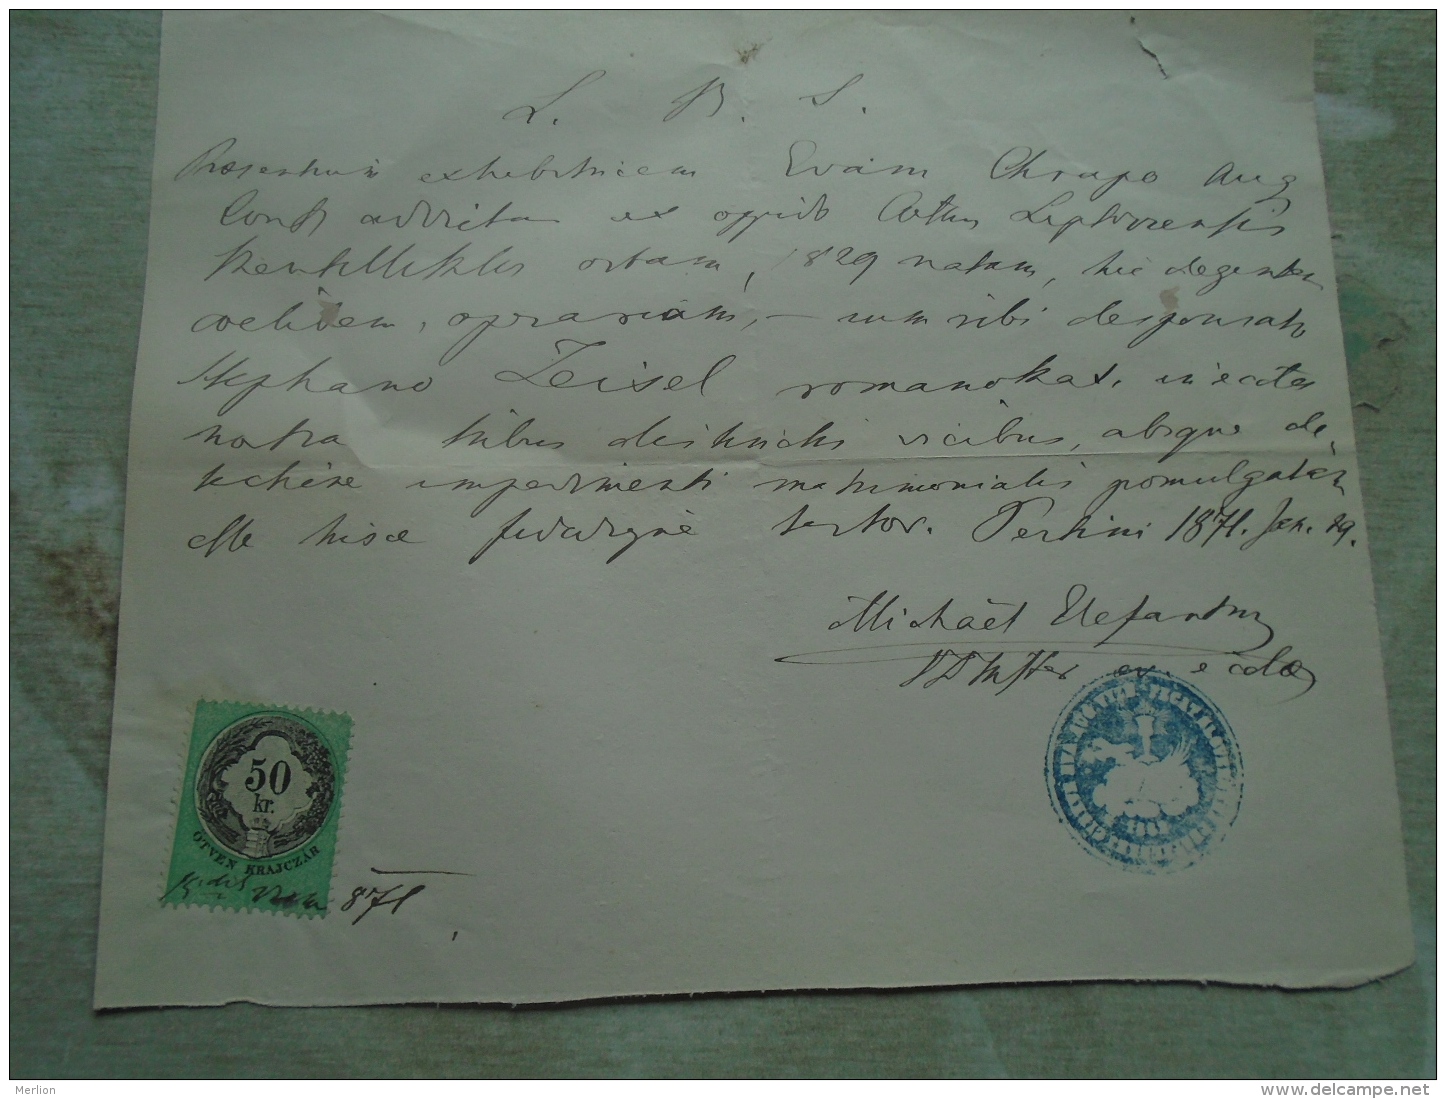 L. B. S.
Praesentium exhibitricem Evam Chrapo Aug
Conf addictam ex oppido Cottus Liptoviensis
Szentmiklós ortam, 1829 natam, hic degentem
coelibem, operariam, – cum sibi desponsato
Stephano Zeisel romanokat. in ecclesia
nostra tribus distinctis vicibus, absque de-
tectione impedimenti matrimonialis promulgatam
esse hisce fideidigne testor. Pestini 1871. Jan. 29.
Michaël Elefantm
VDMster ev. eccla
50
kr.
ÖTVEN KRAJCZÁR
871
Merlion
www.delcampe.net